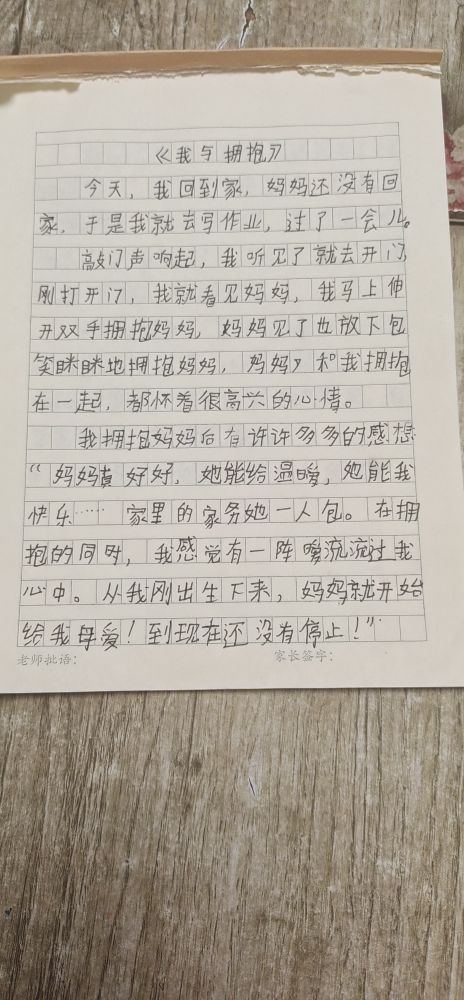 《我与拥抱》
今天，我回到家，妈妈还没有回
家，于是我就去写作业，过了一会儿。
敲门声响起，我听见了就去开门，
刚打开门，我就看见妈妈，我马上伸
开双手拥抱妈妈，妈妈见了也放下包
笑眯眯地拥抱妈妈，妈妈》和我拥抱
在一起，都怀着很高兴的心情。
我拥抱妈妈后有许许多多的感想
“妈妈真好好，她能给温暖，她能我
快乐……家里的家务她一人包。在拥
抱的同时，我感觉有一阵暖流流过我
心中。从我刚出生下来，妈妈就开始
给我母爱！到现在还没有停止！”
老师批语：
家长签字：